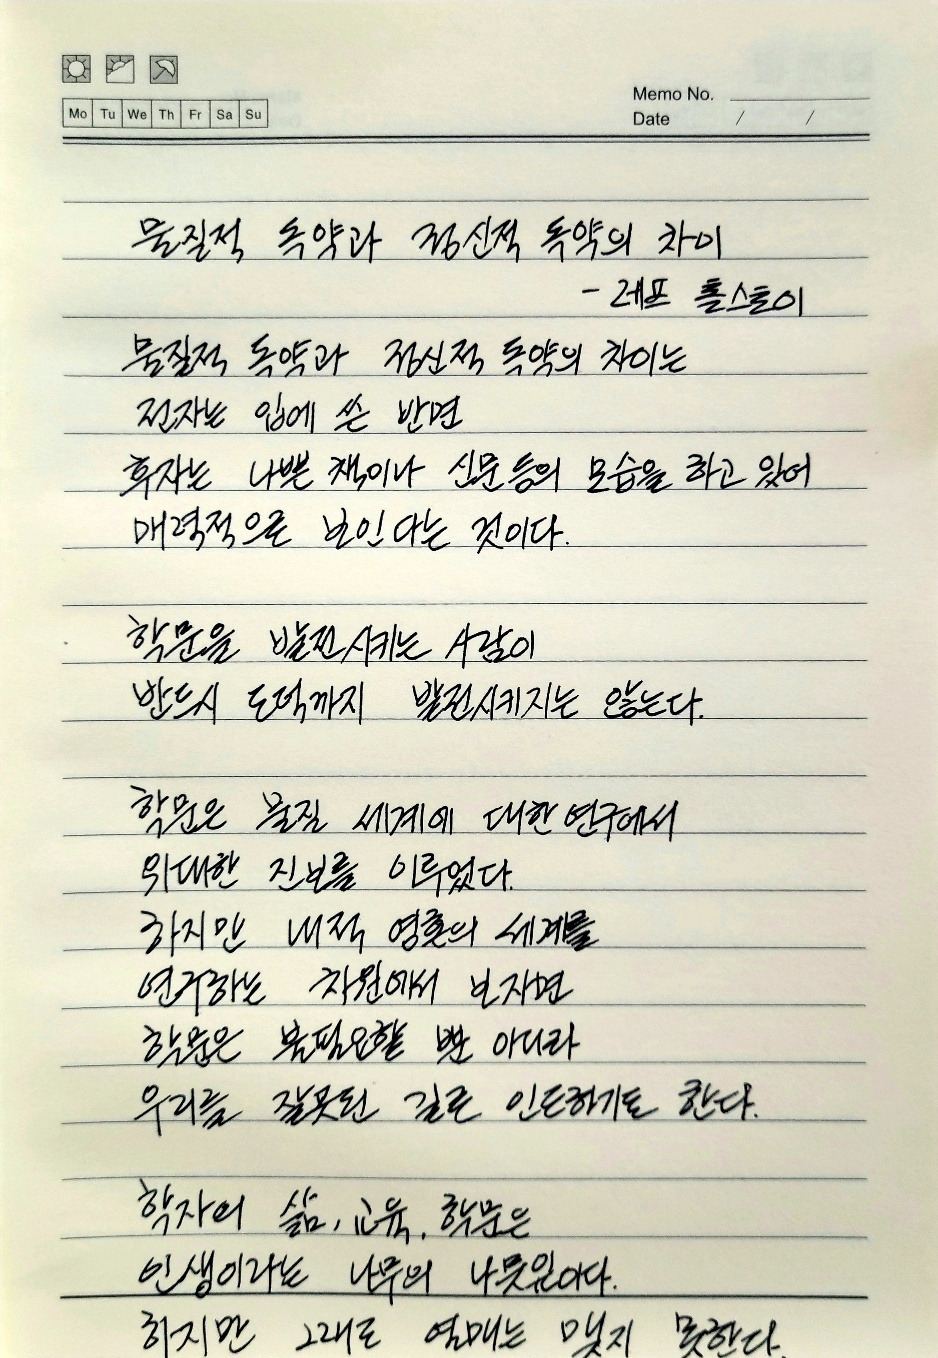 Memo No.
Mo Tu We Th Fr Sa Su
Date / /
물질적 독약과 정신적 독약의 차이
- 레프 톨스토이
물질적 독약과 정신적 독약의 차이는
전자는 입에 쓴 반면
후자는 나쁜 책이나 신문 등의 모습을 하고 있어
매력적으로 보인다는 것이다.
학문을 발전시키는 사람이
반드시 도덕까지 발전시키지는 않는다.
학문은 물질 세계에 대한 연구에서
위대한 진보를 이루었다.
하지만 내적 영혼의 세계를
연구하는 차원에서 보자면
학문은 불필요할 뿐 아니라
우리를 잘못된 길로 인도하기도 한다.
학자의 삶, 교육, 학문은
인생이라는 나무의 나뭇잎이다.
하지만 그래도 열매는 맺지 못한다.